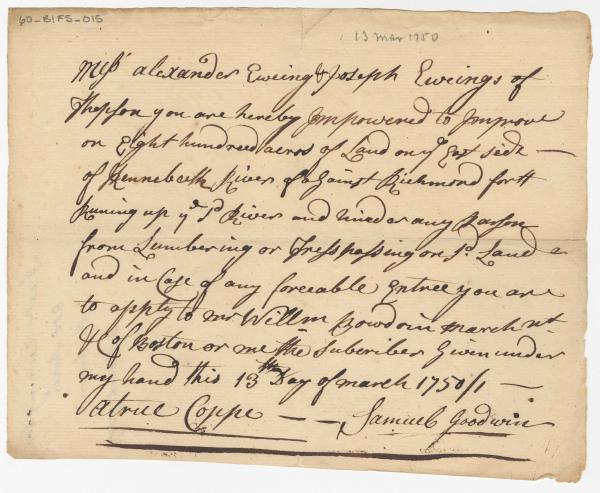 60-B1F5-015
13 Mar 1750
Messrs Alexander Eweing & Joseph Eweings of
Thopson you are hereby Impowered to Improve
on Eight hundred acros of Land on ye Est side —
of Kennebeck River against Richmond fortt
Runing up ye sd River and hinder any Parson
from Lumbering or Tresspassing on sd Land
and in Case of any foreable Entree you are
to apply to mr Willm Bowdoin march nt
of Boston or me the Subcriber Given under
my hand this 13th Day of march 1750/1 —
a true Coppe — — Samuel Goodwin